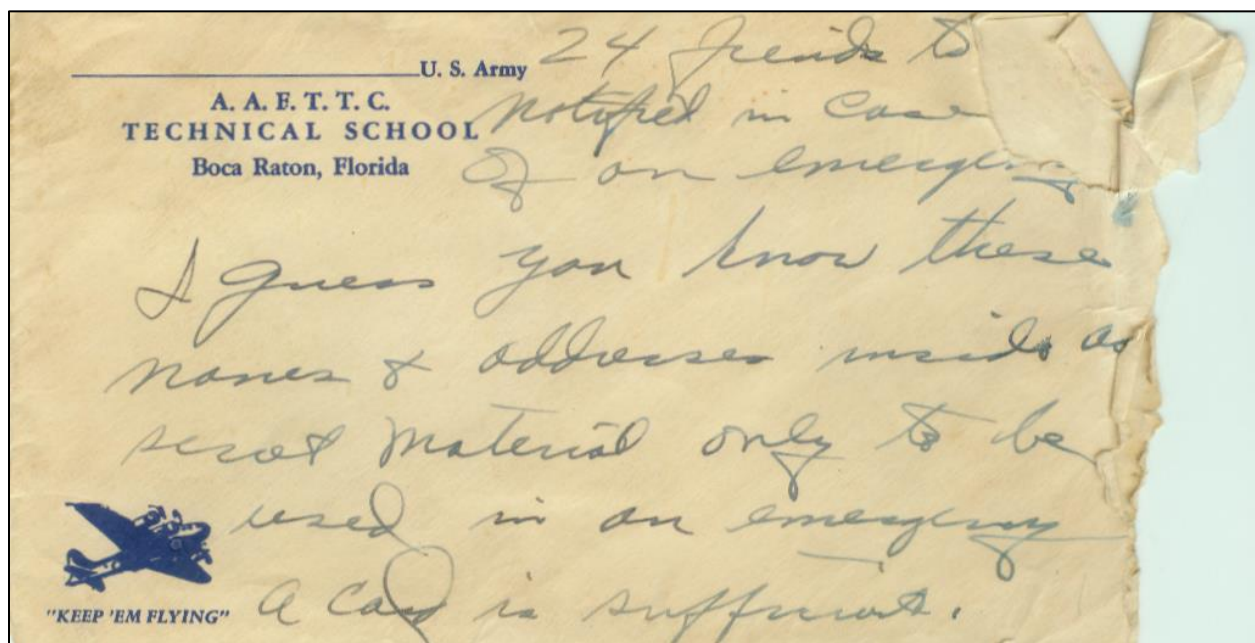 _____________U. S. Army
A. A. F. T. T. C.
TECHNICAL SCHOOL
Boca Raton, Florida
24 freinds to
Notified in Case
Of an emergency
I guess you know these
names & addresses inside as
secret material only to be
used in an emergency
A card is sufficient.
"KEEP 'EM FLYING"